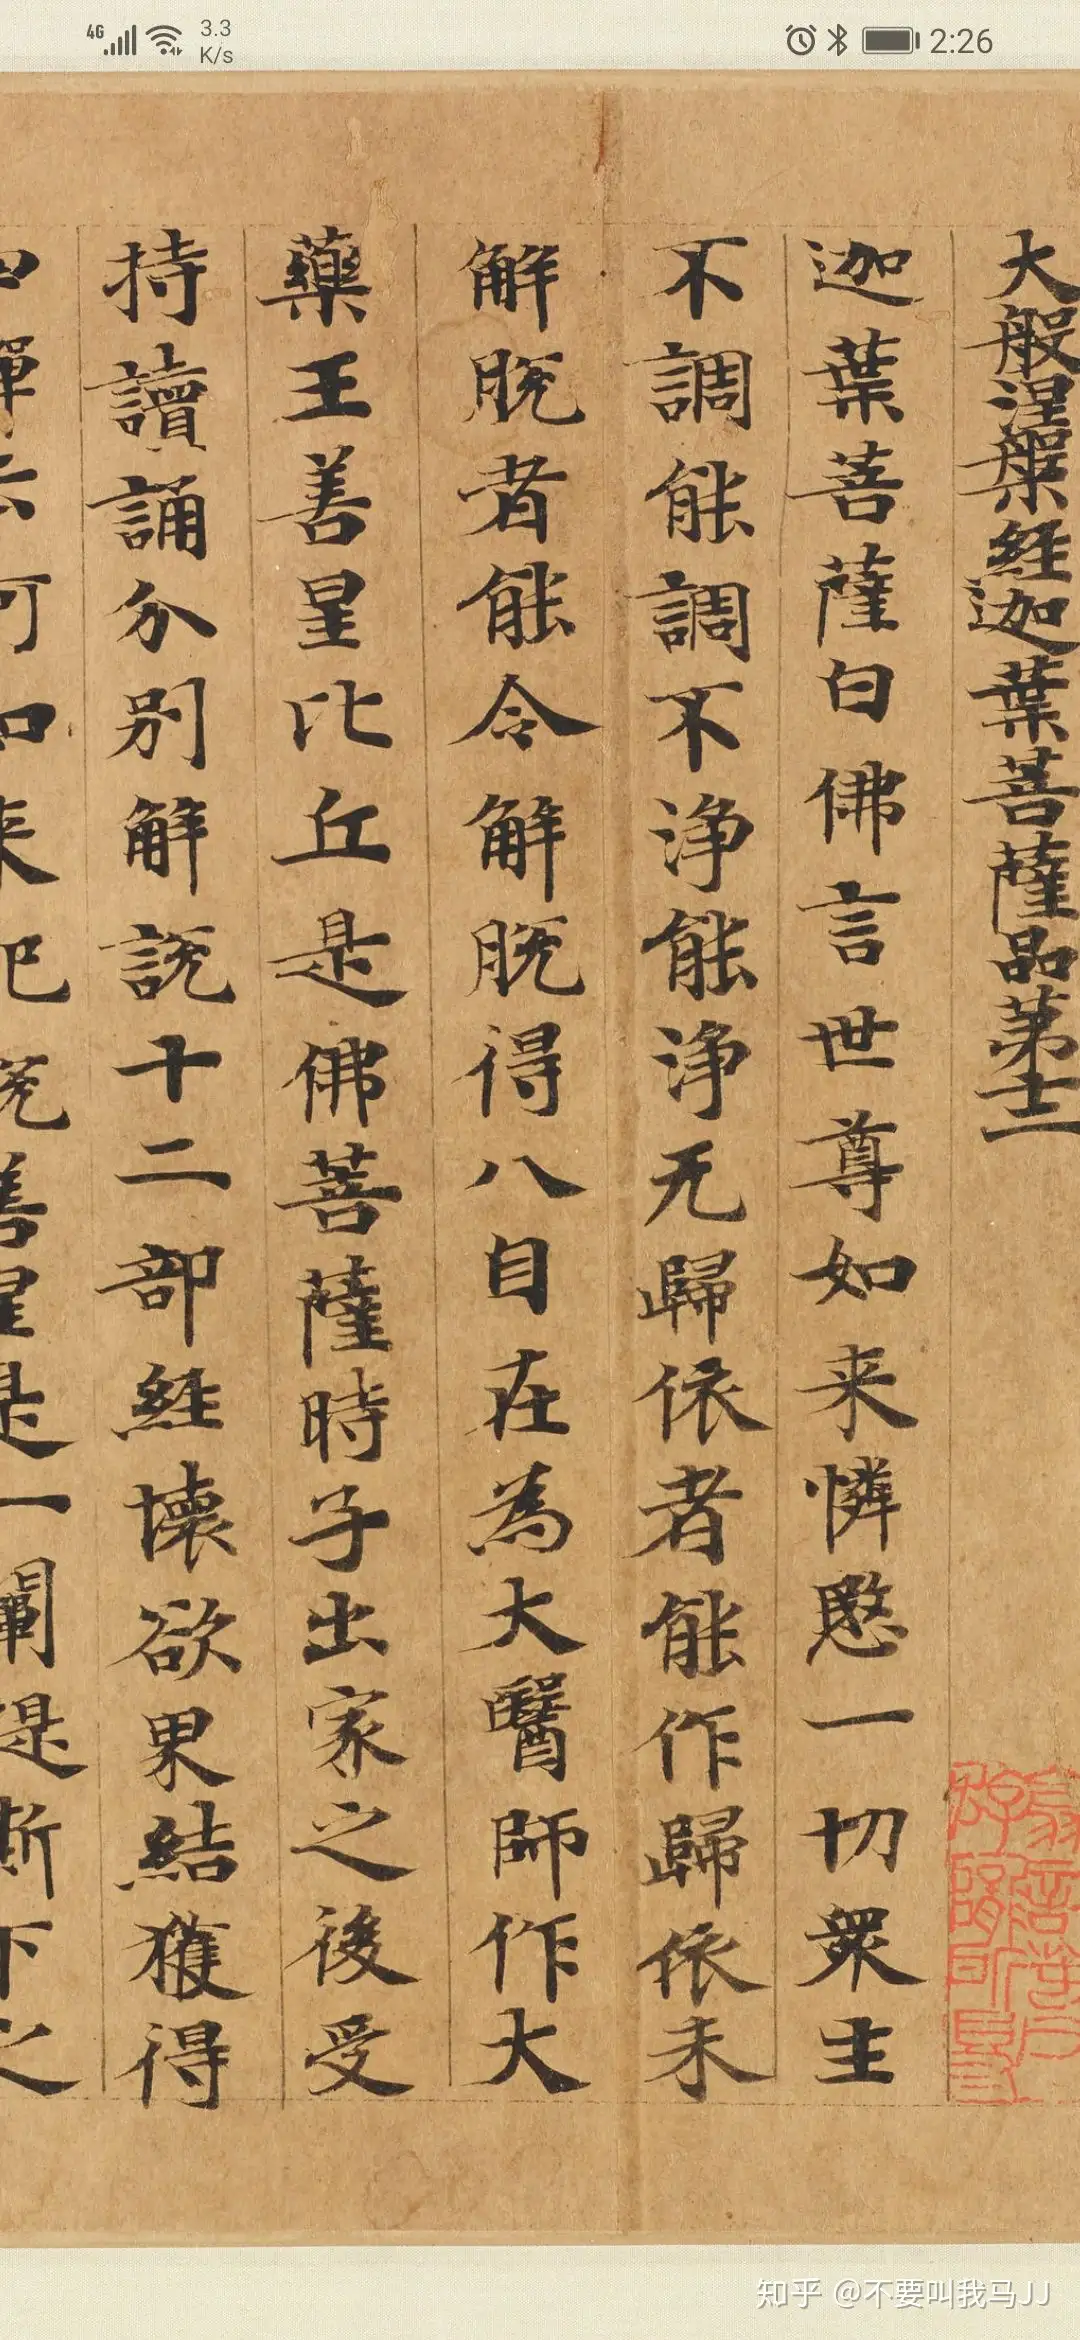 4G 3.3 K/s 2:26
大般涅槃經迦葉菩薩品苐十二
迦葉菩薩白佛言世尊如来憐愍一切衆生
不調能調不淨能淨无歸依者能作歸依未
解脫者能令解脫得八自在為大醫師作大
藥王善星比丘是佛菩薩時子出家之後受
持讀誦分別解說十二部經壞欲界結獲得
四禪云何如来記說善星是一闡提斯下之
知乎 @不要叫我马JJ